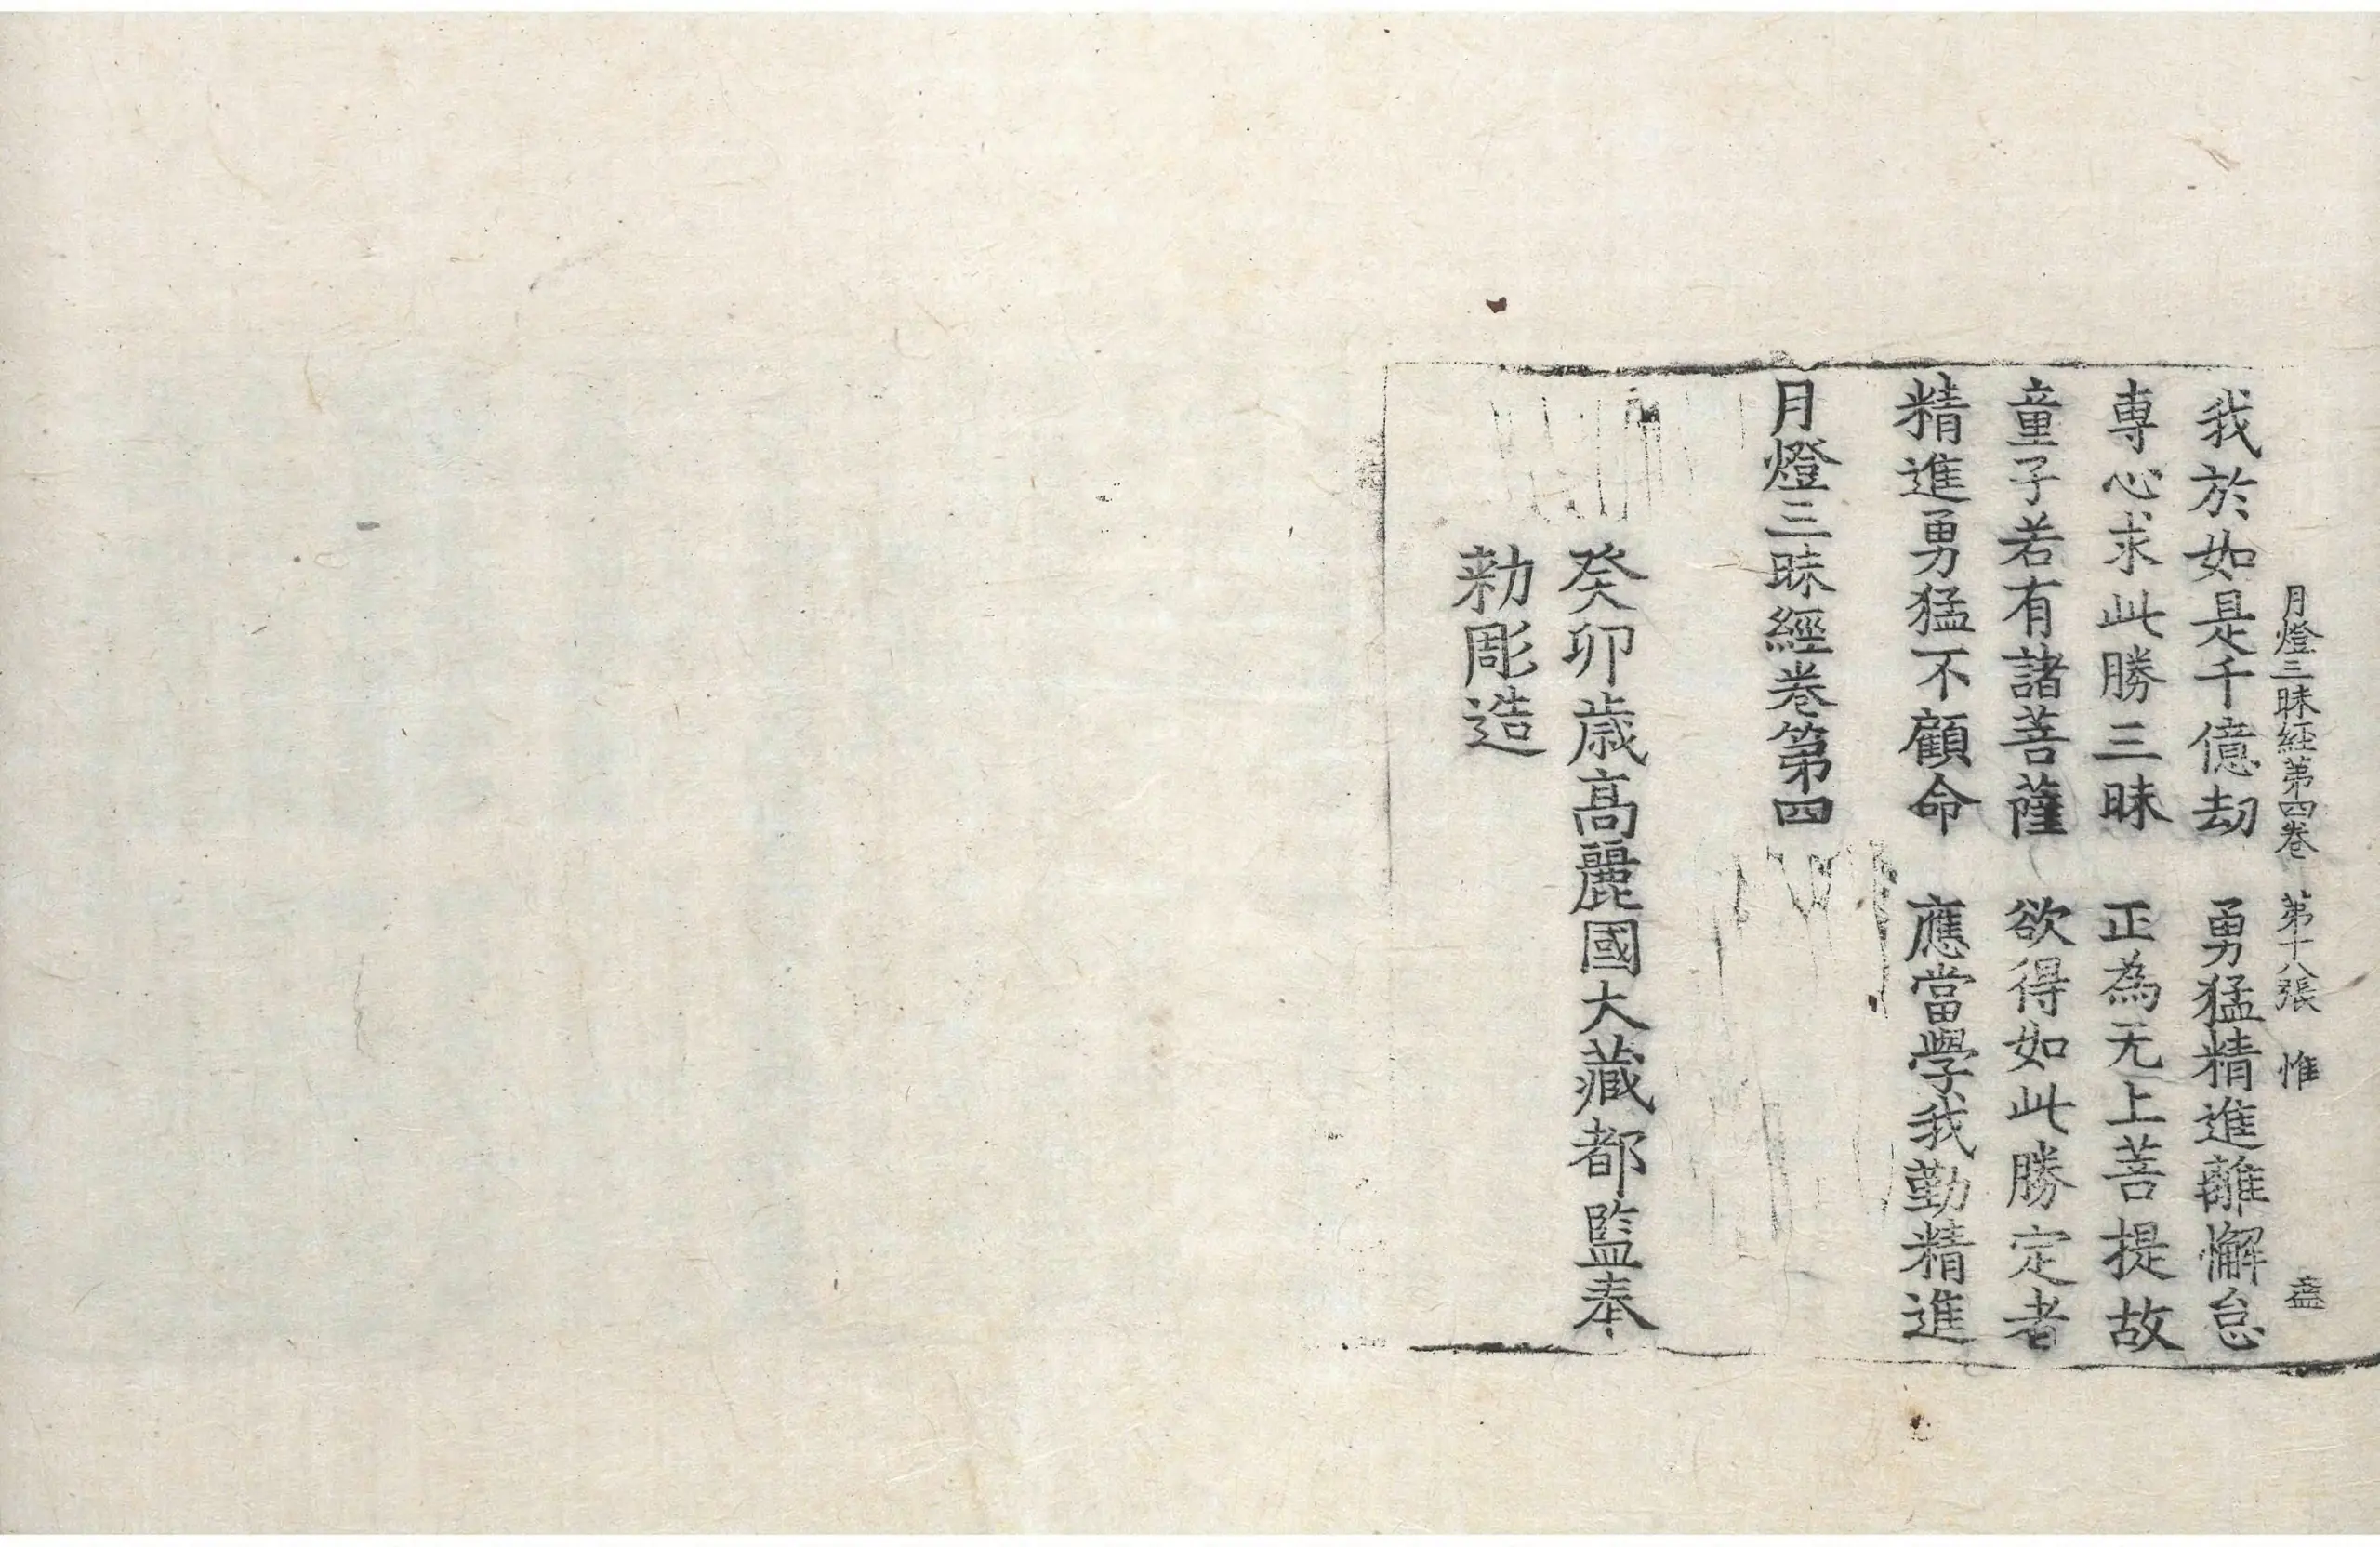 月燈三昧経第四卷 第十八張 惟
我於如是千億劫 勇猛精進離懈怠
専心求此勝三昧 正為无上菩提故
童子若有諸菩薩 欲得如此勝定者
精進勇猛不顧命 應當學我勤精進
月燈三昧經卷第四
癸卯歳高麗國大藏都監奉
勑彫造